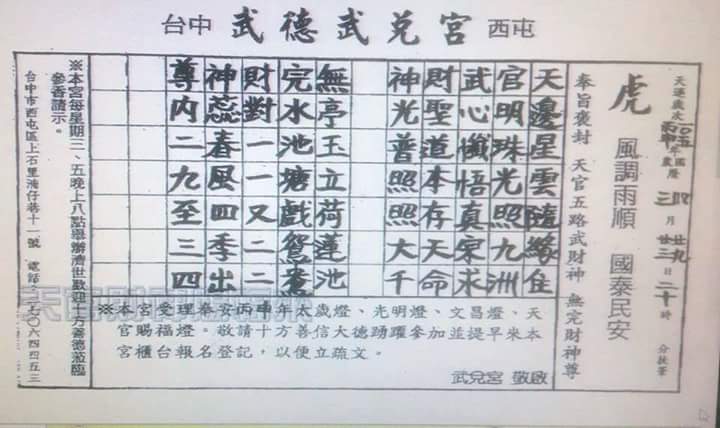 台中 武德武兌宮 西屯
天運歲次 一〇五 丙申 年 國曆 農曆 四 三 月 廿九 廿三 日二十時 分扶筆
虎 風調雨順 國泰民安
奉旨褒封 天官五路武財神 無完財神尊
天邊星雲隨緣住
官明珠光照九洲
武心懺悟真宗求
財聖道本存天命
神光普照照大千
無亭玉立荷蓮池
完水池塘戲鴛鴦
財對一一又二二
神蕊春風四季出
尊内二九至三四
※本宮受理奉安丙申年太歲燈、光明燈、文昌燈、天
官賜福燈。敬請十方善信大德踴躍參加並提早來本
宮櫃台報名登記，以便立疏文。
武兌宮 敬啟
※本宮每星期三、五晚上八點舉辦濟世歡迎十方善德蒞臨
參香請示。
台中市西屯區上石里湳仔巷十一號 電話